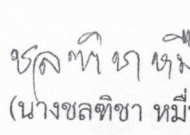 ชลฑิชา หมื
(นางชลฑิชา หมื่